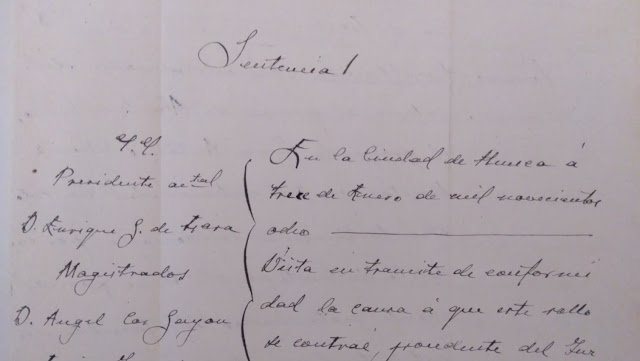 Sentencia
Presidente actual
D. Enrique G. de
Magistrados
D. Angel
En la Ciudad de Huesca á
trece de Enero de mil novecientos
ocho
Vista en tramite de conformi
dad la causa á que este rollo
se contrae, procedente del Juz